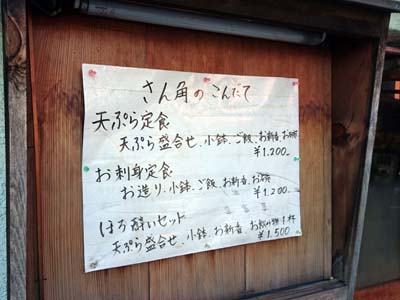 さん角のこんだて
天ぷら定食
天ぷら盛合せ、小鉢、ご飯、お新香、お椀
¥1.200-
お刺身定食
お造り、小鉢、ご飯、お新香、お椀
¥1.200-
ほろ酔いセット
天ぷら盛合せ、小鉢、お新香、お飲み物1杯
¥1.500